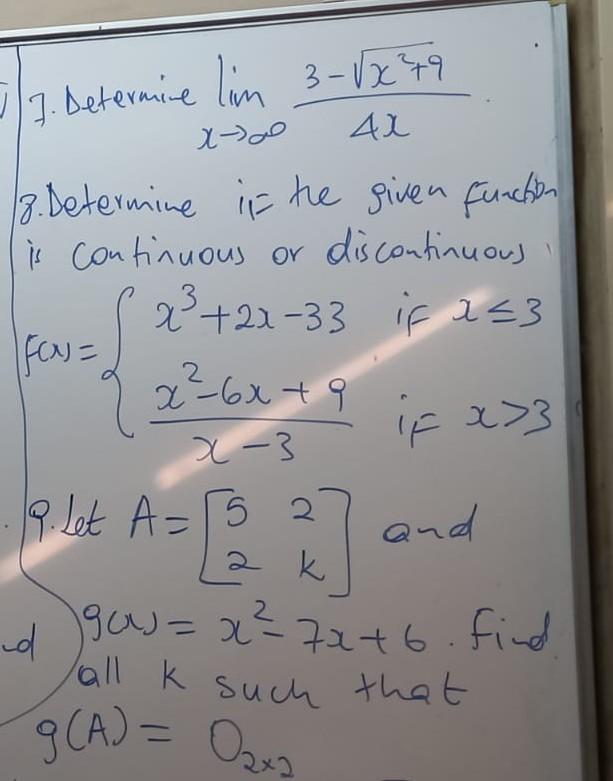 7. Determine lim x→∞ (3 - √(x²+9)) / 4x
8. Determine if the given function
is continuous or discontinuous
f(x) = { x³ + 2x - 33 if x ≤ 3
(x² - 6x + 9) / (x - 3) if x > 3
9. Let A = [5 2; 2 k] and
g(x) = x² - 7x + 6. Find
all k such that
g(A) = O₂ₓ₂